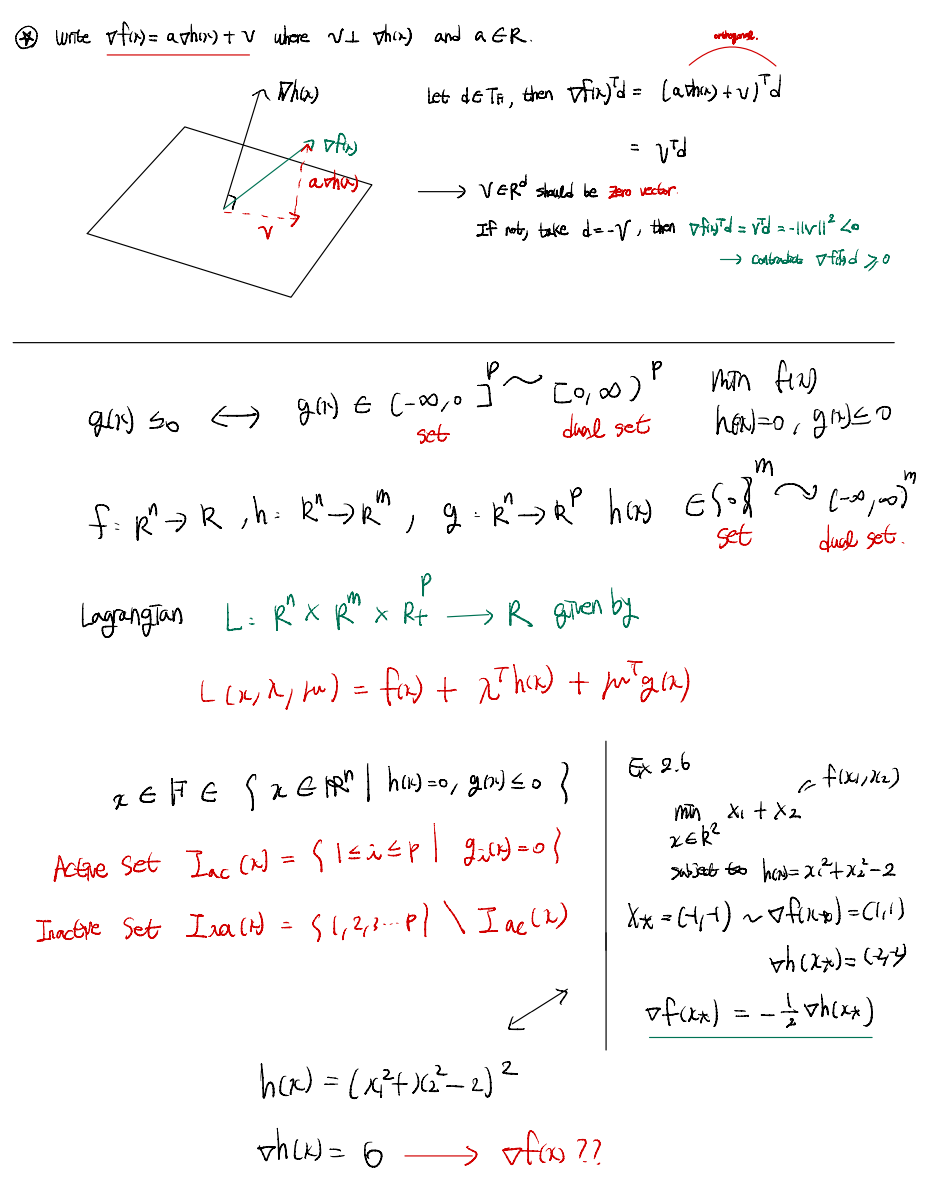 ⊛ Write ∇f(x) = a∇h(x) + v where v ⊥ ∇h(x) and a ∈ R.
orthogonal.
∇h(x)
∇f(x)
a∇h(x)
v
Let d ∈ T_F, then ∇f(x)^T d = (a∇h(x) + v)^T d
= v^T d
→ v ∈ R^d should be zero vector.
If not, take d = -v, then ∇f(x)^T d = v^T d = -||v||^2 < 0
→ contradicts ∇f(x)^T d ≥ 0
g(x) ≤ 0 ↔ g(x) ∈ (-∞, 0]^p ~ [0, ∞)^p
set
dual set
min f(x)
h(x)=0, g(x) ≤ 0
f: R^n → R, h: R^n → R^m, g: R^n → R^p h(x) ∈ {0}^m ~ (-∞, ∞)^m
set
dual set.
Lagrangian L: R^n × R^m × R_+^p → R given by
L(x, λ, μ) = f(x) + λ^T h(x) + μ^T g(x)
x ∈ F ∈ { x ∈ R^n | h(x)=0, g(x) ≤ 0 }
Active Set I_ac(x) = { 1 ≤ i ≤ p | g_i(x)=0 }
Inactive Set I_ia(x) = { 1, 2, 3 ... p } \ I_ac(x)
Ex 2.6
f(x_1, x_2)
min x_1 + x_2
x ∈ R^2
subject to h(x) = x_1^2 + x_2^2 - 2
x_* = (-1, -1) ~ ∇f(x_*) = (1, 1)
∇h(x_*) = (-2, -2)
∇f(x_*) = -1/2 ∇h(x_*)
h(x) = (x_1^2 + x_2^2 - 2)^2
∇h(x) = 0 → ∇f(x) ??